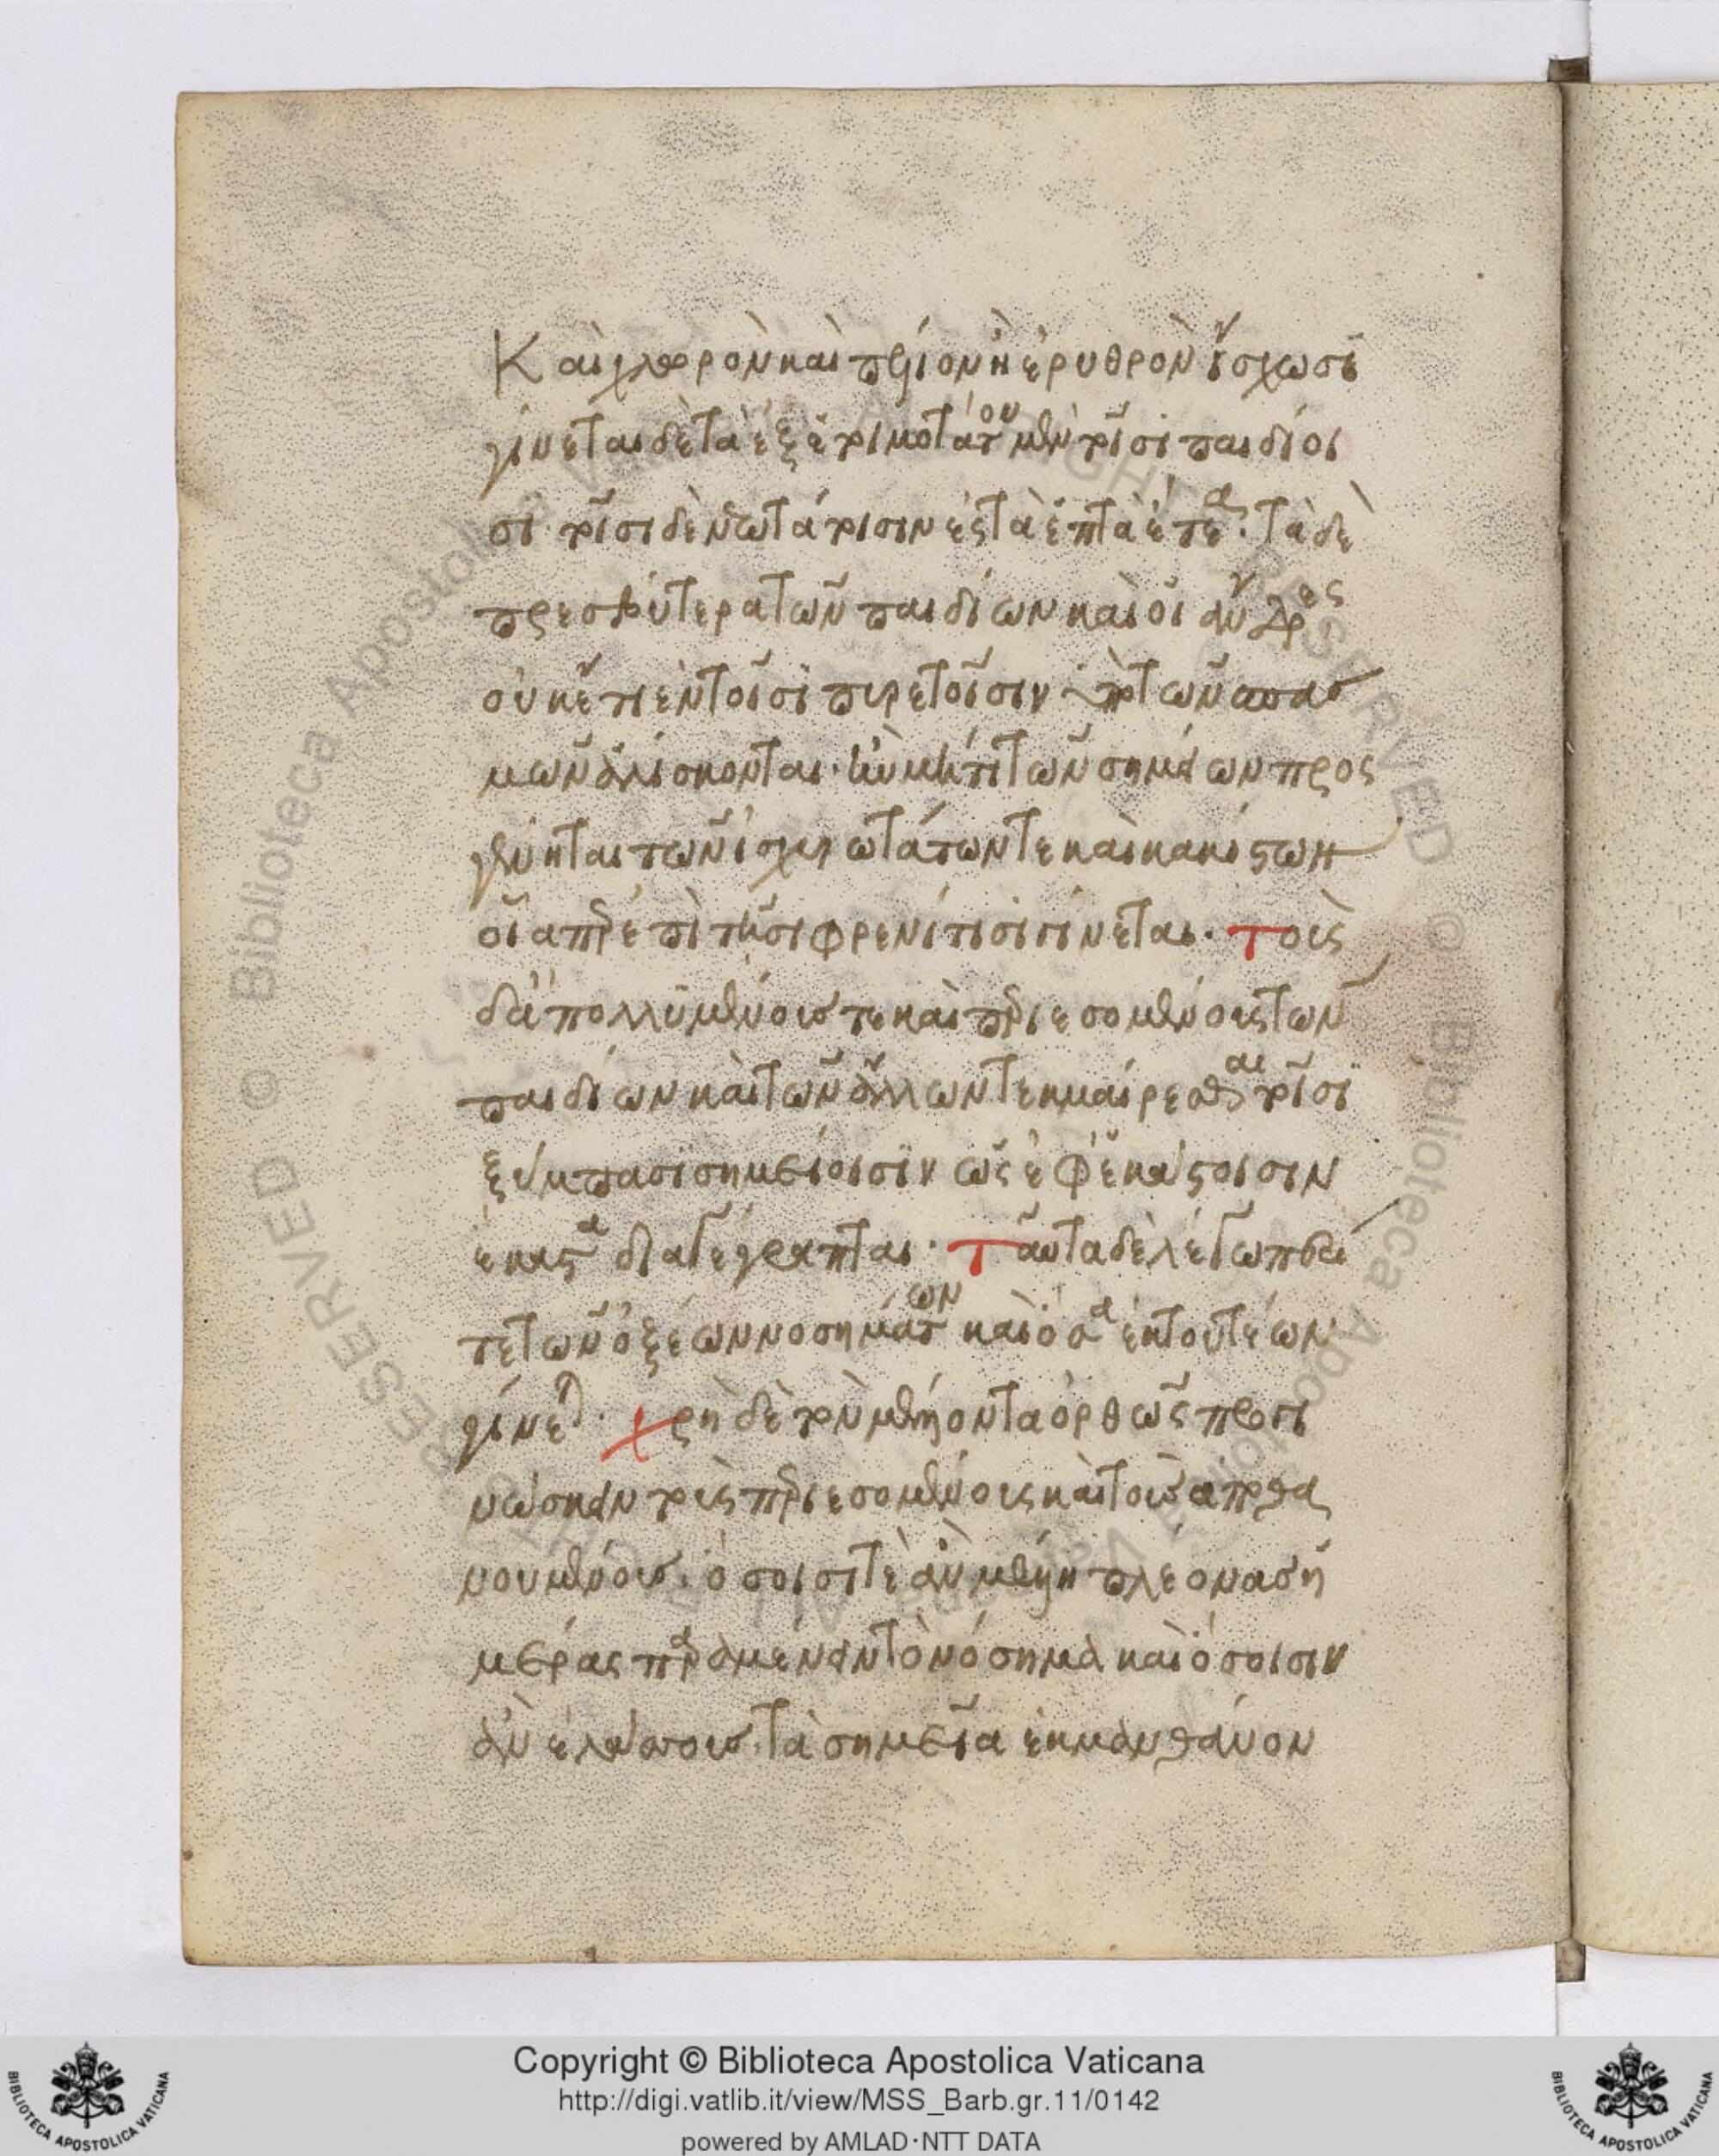 Καὶ χλωρὸν καὶ πελιὸν ἢ ἐρυθρὸν ἴσχωσι
γίνεται δὲ ταῦτα ἑτοιμότατον μὲν τοῖσι παιδίοι
σι τοῖσι δὲ νεωτάτοισιν ἐς τὰ ἑπτὰ ἔτεα· τὰ δὲ
πρεσβύτερα τῶν παιδίων καὶ οἱ ἄνδρες
οὐκ ἔτι ἐν τοῖσι πυρετοῖσιν ὑπὸ τῶν σπασ
μῶν ἁλίσκονται· ἢν μή τι τῶν σημείων προς
γένηται τῶν ἰσχυροτάτων τε καὶ κακίστων
οἷα περ ἐπὶ τῆσι φρενίτισι γίνεται· τοὺς
δὲ ἀπολλυμένους τε καὶ περιεσομένους τῶν
παιδίων καὶ τῶν ἄλλων τεκμαίρεσθαι τοῖσι
ξύμπασι σημείοισιν ὡς ἐφ' ἑκάστοισιν
ἕκαστα διαγέγραπται· ταῦτα δὲ λέγω περί
τε τῶν ὀξέων νοσημάτων καὶ ὅσα ἐκ τουτέων
γίνεται· χρὴ δὲ τὸν μέλλοντα ὀρθῶς προγι
νώσκειν τοὺς περιεσομένους καὶ τοὺς ἀποθα
νουμένους· ὅσοισί τε ἂν μέλλῃ πλέονας ἡ
μέρας παραμένειν τὸ νόσημα καὶ ὅσοισιν
ἂν ἐλάσσους· τὰ σημεῖα ἐκμανθάνον
Copyright © Biblioteca Apostolica Vaticana
http://digi.vatlib.it/view/MSS_Barb.gr.11/0142
powered by AMLAD·NTT DATA